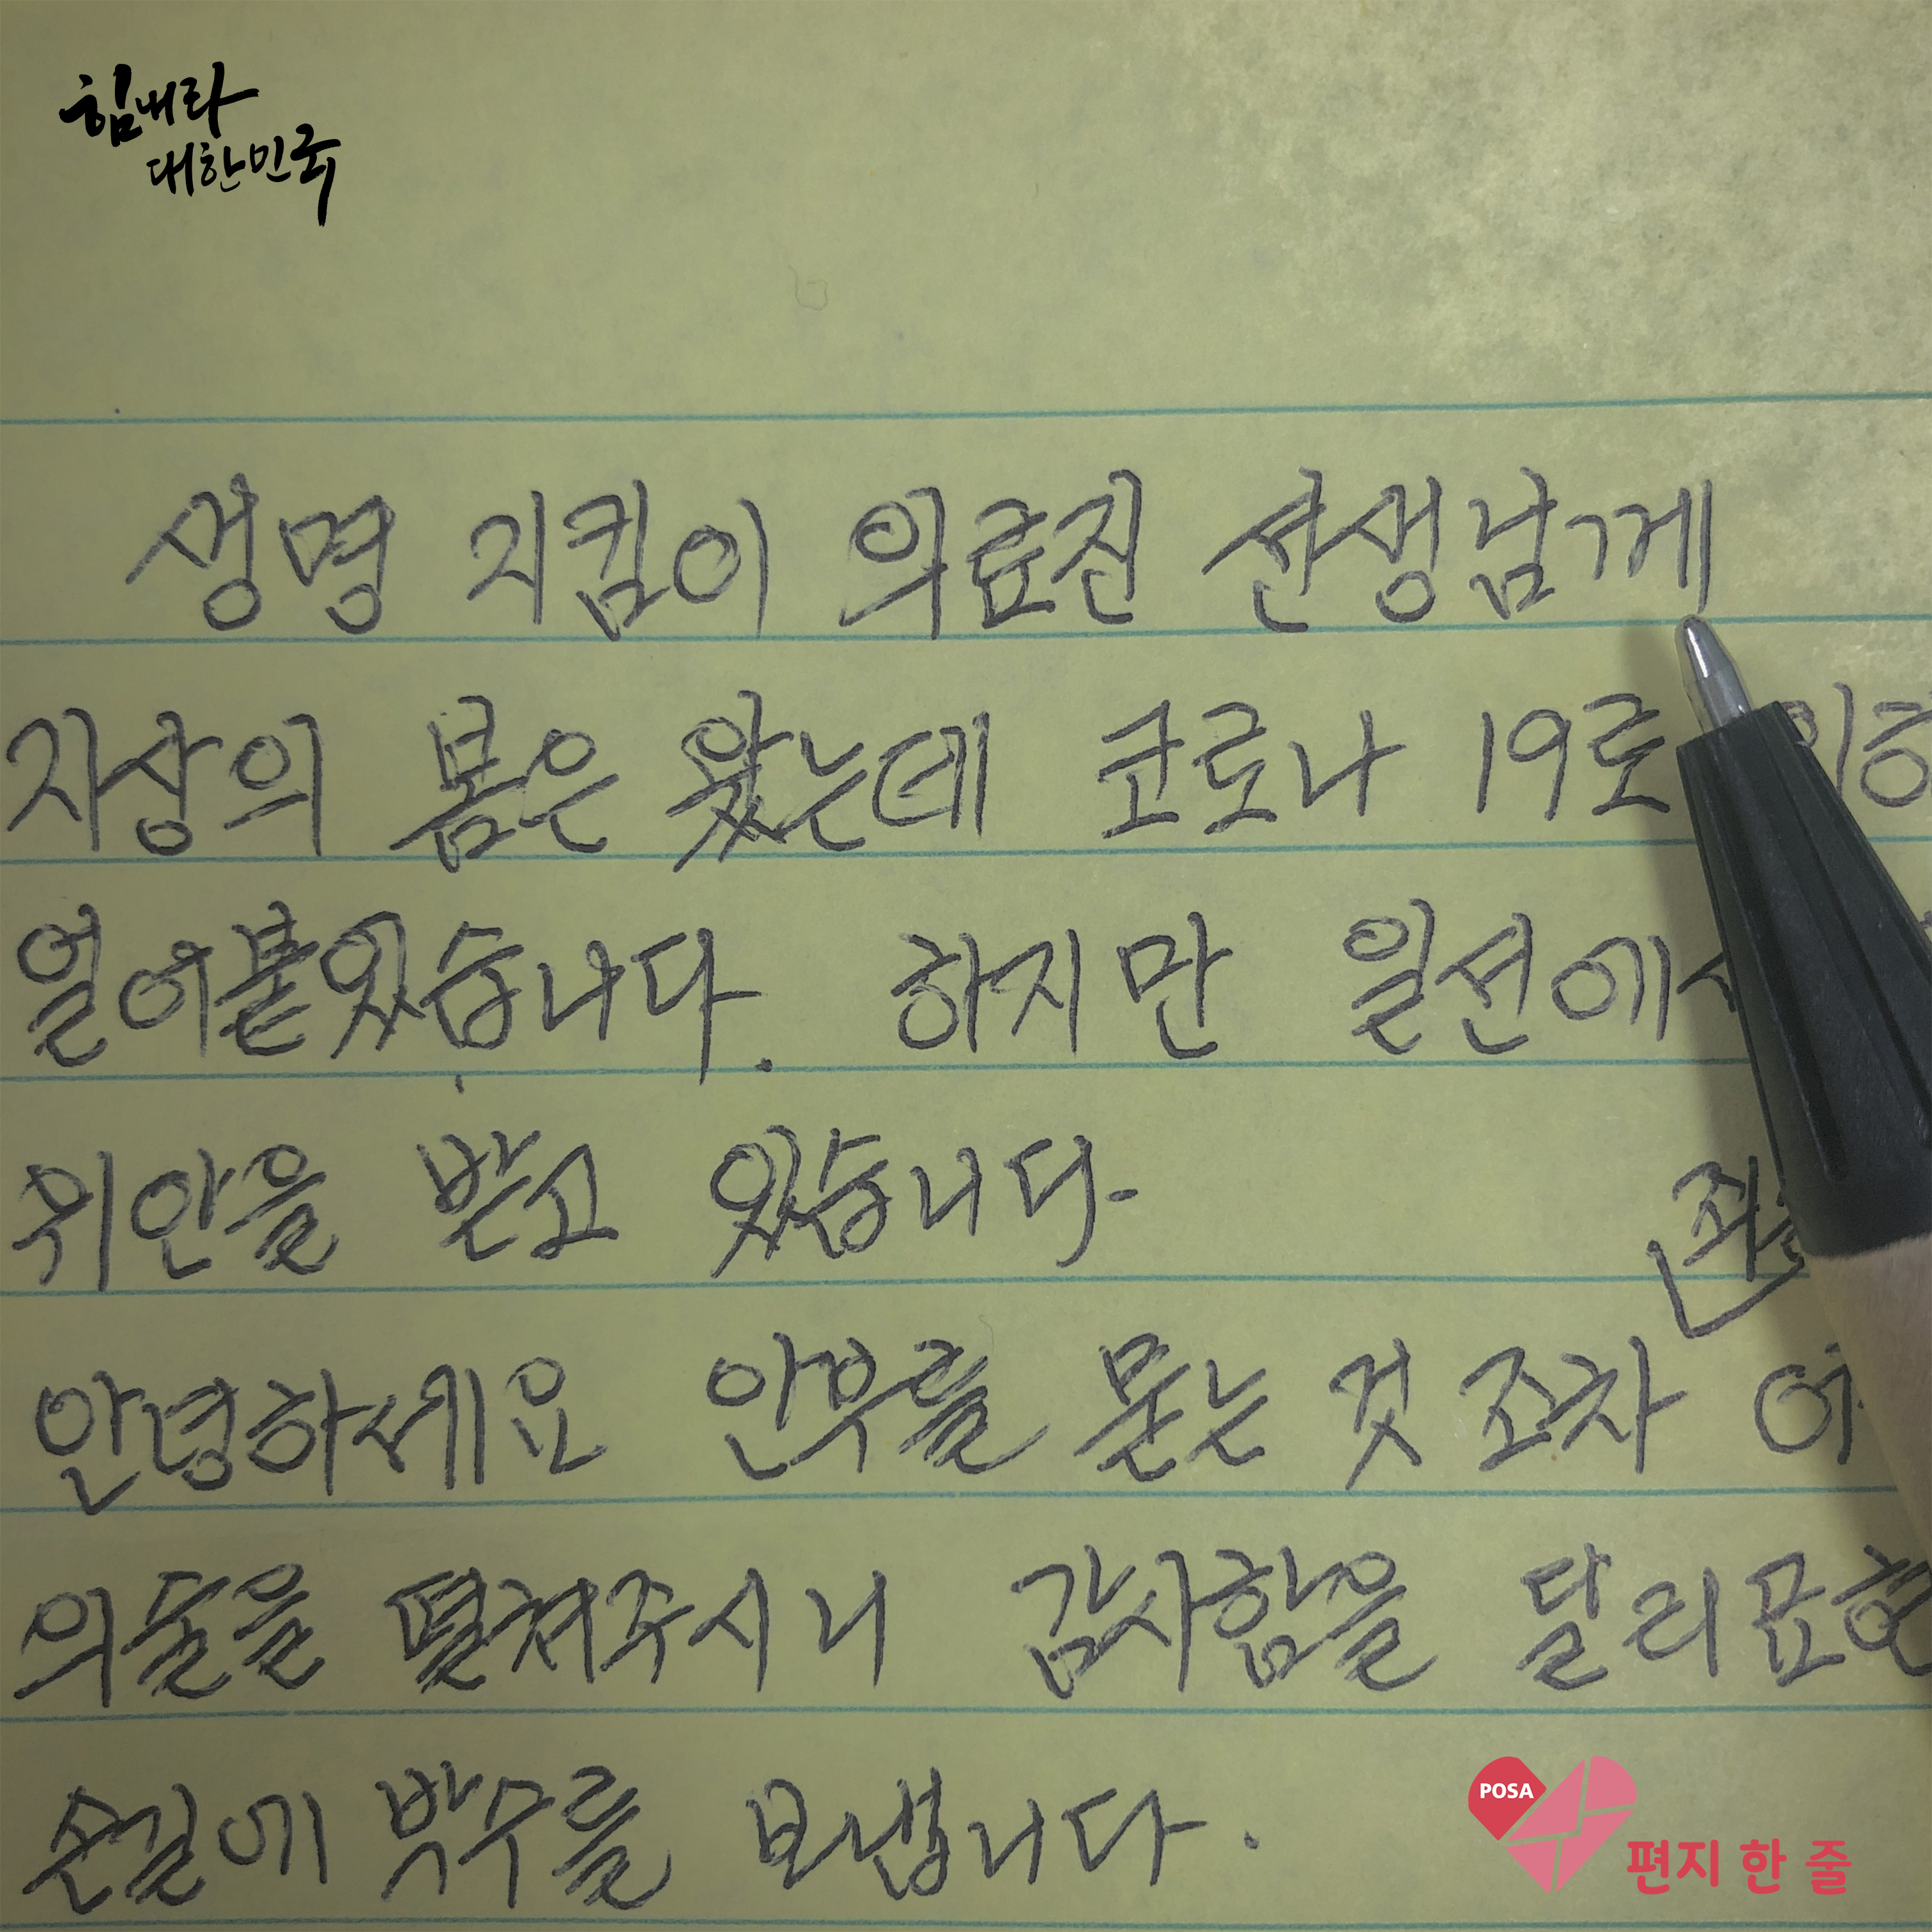 힘내라
대한민국
생명 지킴이 의료진 선생님께
지상의 봄은 왔는데 코로나 19로
얼어붙었습니다. 하지만 일선에서
위안을 받고 있습니다
안녕하세요 안부를 묻는 것 조차
의술을 펼쳐주시니 감사함을 달리 표현
손길에 박수를 보냅니다.
POSA
편지 한 줄